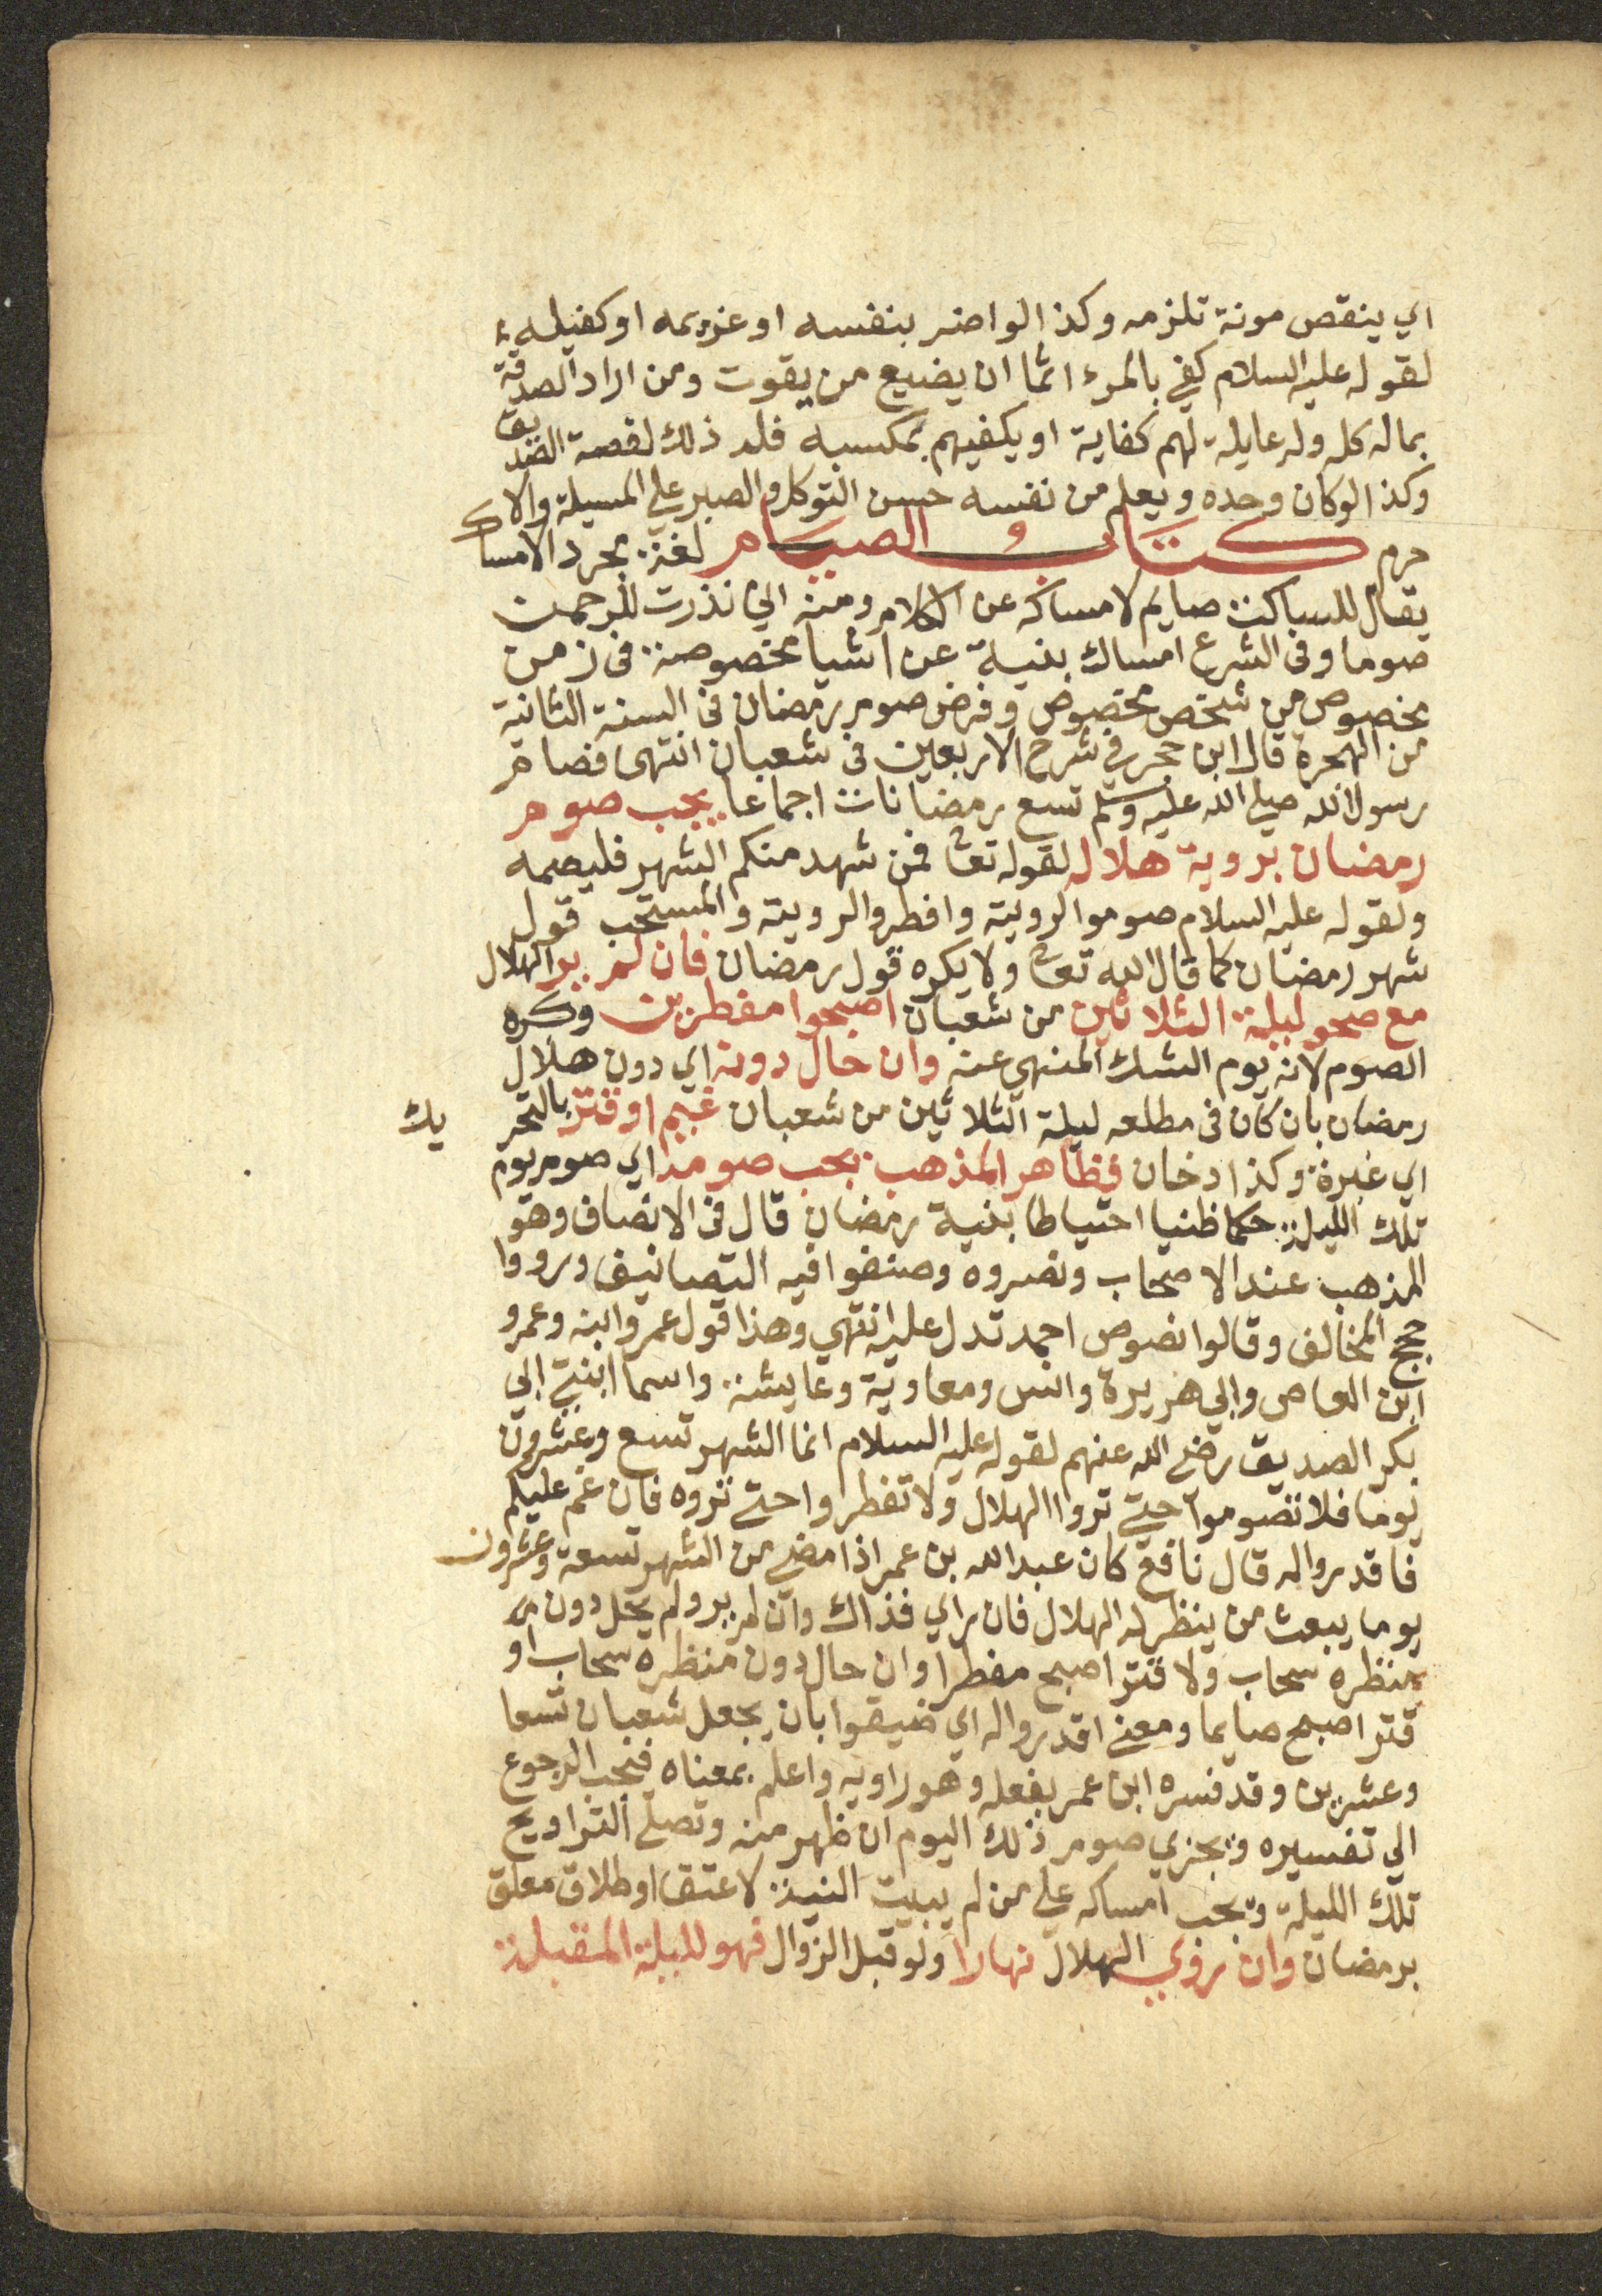 اي ينقص مونة تلزمه وكذا لو اضر بنفسه او غريمه او كفيله
لقوله عليه السلام كفى بالمرء اثما ان يضيع من يقوت ومن اراد الصدقة
بماله كله وله عايلة لهم كفاية او يكفيهم بمكسبه فله ذلك لقصة الصديق
وكذا لو كان وحده ويعلم من نفسه حسن التوكل والصبر على المسيلة والا
حرم كتاب الصيام لغة مجرد الامساك
يقال للساكت صايم لامساكه عن الكلام ومنه اني نذرت للرحمن
صوما وفي الشرع امساك بنية عن اشيا مخصوصة في زمن
مخصوص من شخص مخصوص وفرض صوم رمضان في السنة الثانية
من الهجرة قال ابن حجر في شرح الاربعين في شعبان انتهى فصام
رسول الله صلى الله عليه وسلم تسع رمضانات اجماعا يجب صوم
رمضان بروية هلاله لقوله تعا فمن شهد منكم الشهر فليصمه
ولقوله عليه السلام صوموا لرويته وافطروا لرويته والمستحب قول
شهر رمضان كما قال الله تعا ولا يكره قول رمضان فان لم ير الهلال
مع صحو ليلة الثلاثين من شعبان اصبحوا مفطرين وكره
الصوم لانه يوم الشك المنهي عنه وان حال دونه اي دون هلال
رمضان بان كان في مطلعه ليلة الثلاثين من شعبان غيم او قتر بالتحر يك
اي غبرة وكذا دخان فظاهر المذهب يجب صومه اي صوم يوم
تلك الليلة حكما ظنيا احتياطا بنية رمضان قال في الانصاف وهو
المذهب عند الاصحاب ونصروه وصنفوا فيه التصانيف وردوا
حجج المخالف وقالوا نصوص احمد تدل عليه انتهى وهذا قول عمر وابنه وعمرو
ابن العاص وابي هريرة وانس ومعاوية وعايشة واسما ابنتي ابي
بكر الصديق رضي الله عنهم لقوله عليه السلام انما الشهر تسع وعشرون
يوما فلا تصوموا حتى تروا الهلال ولا تفطروا حتى تروه فان غم عليكم
فاقدروا له قال نافع كان عبد الله بن عمر اذا مضى من الشهر تسعة وعشرون
يوما يبعث من ينظر له الهلال فان راي فذاك وان لم ير ولم يحل دون
منظره سحاب ولا قتر اصبح مفطرا وان حال دون منظره سحاب او
قتر اصبح صايما ومعنى اقدروا له اي ضيقوا بان يجعل شعبان تسعا
وعشرين وقد فسره ابن عمر بفعله وهو راويه واعلم بمعناه فيجب الرجوع
الي تفسيره ويجزي صوم ذلك اليوم ان ظهر منه وتصلى التراويح
تلك الليلة ويجب امساكه على من لم يبيت النية لا عتق او طلاق معلق
برمضان وان روي الهلال نهارا ولو قبل الزوال فهو لليلة المقبلة